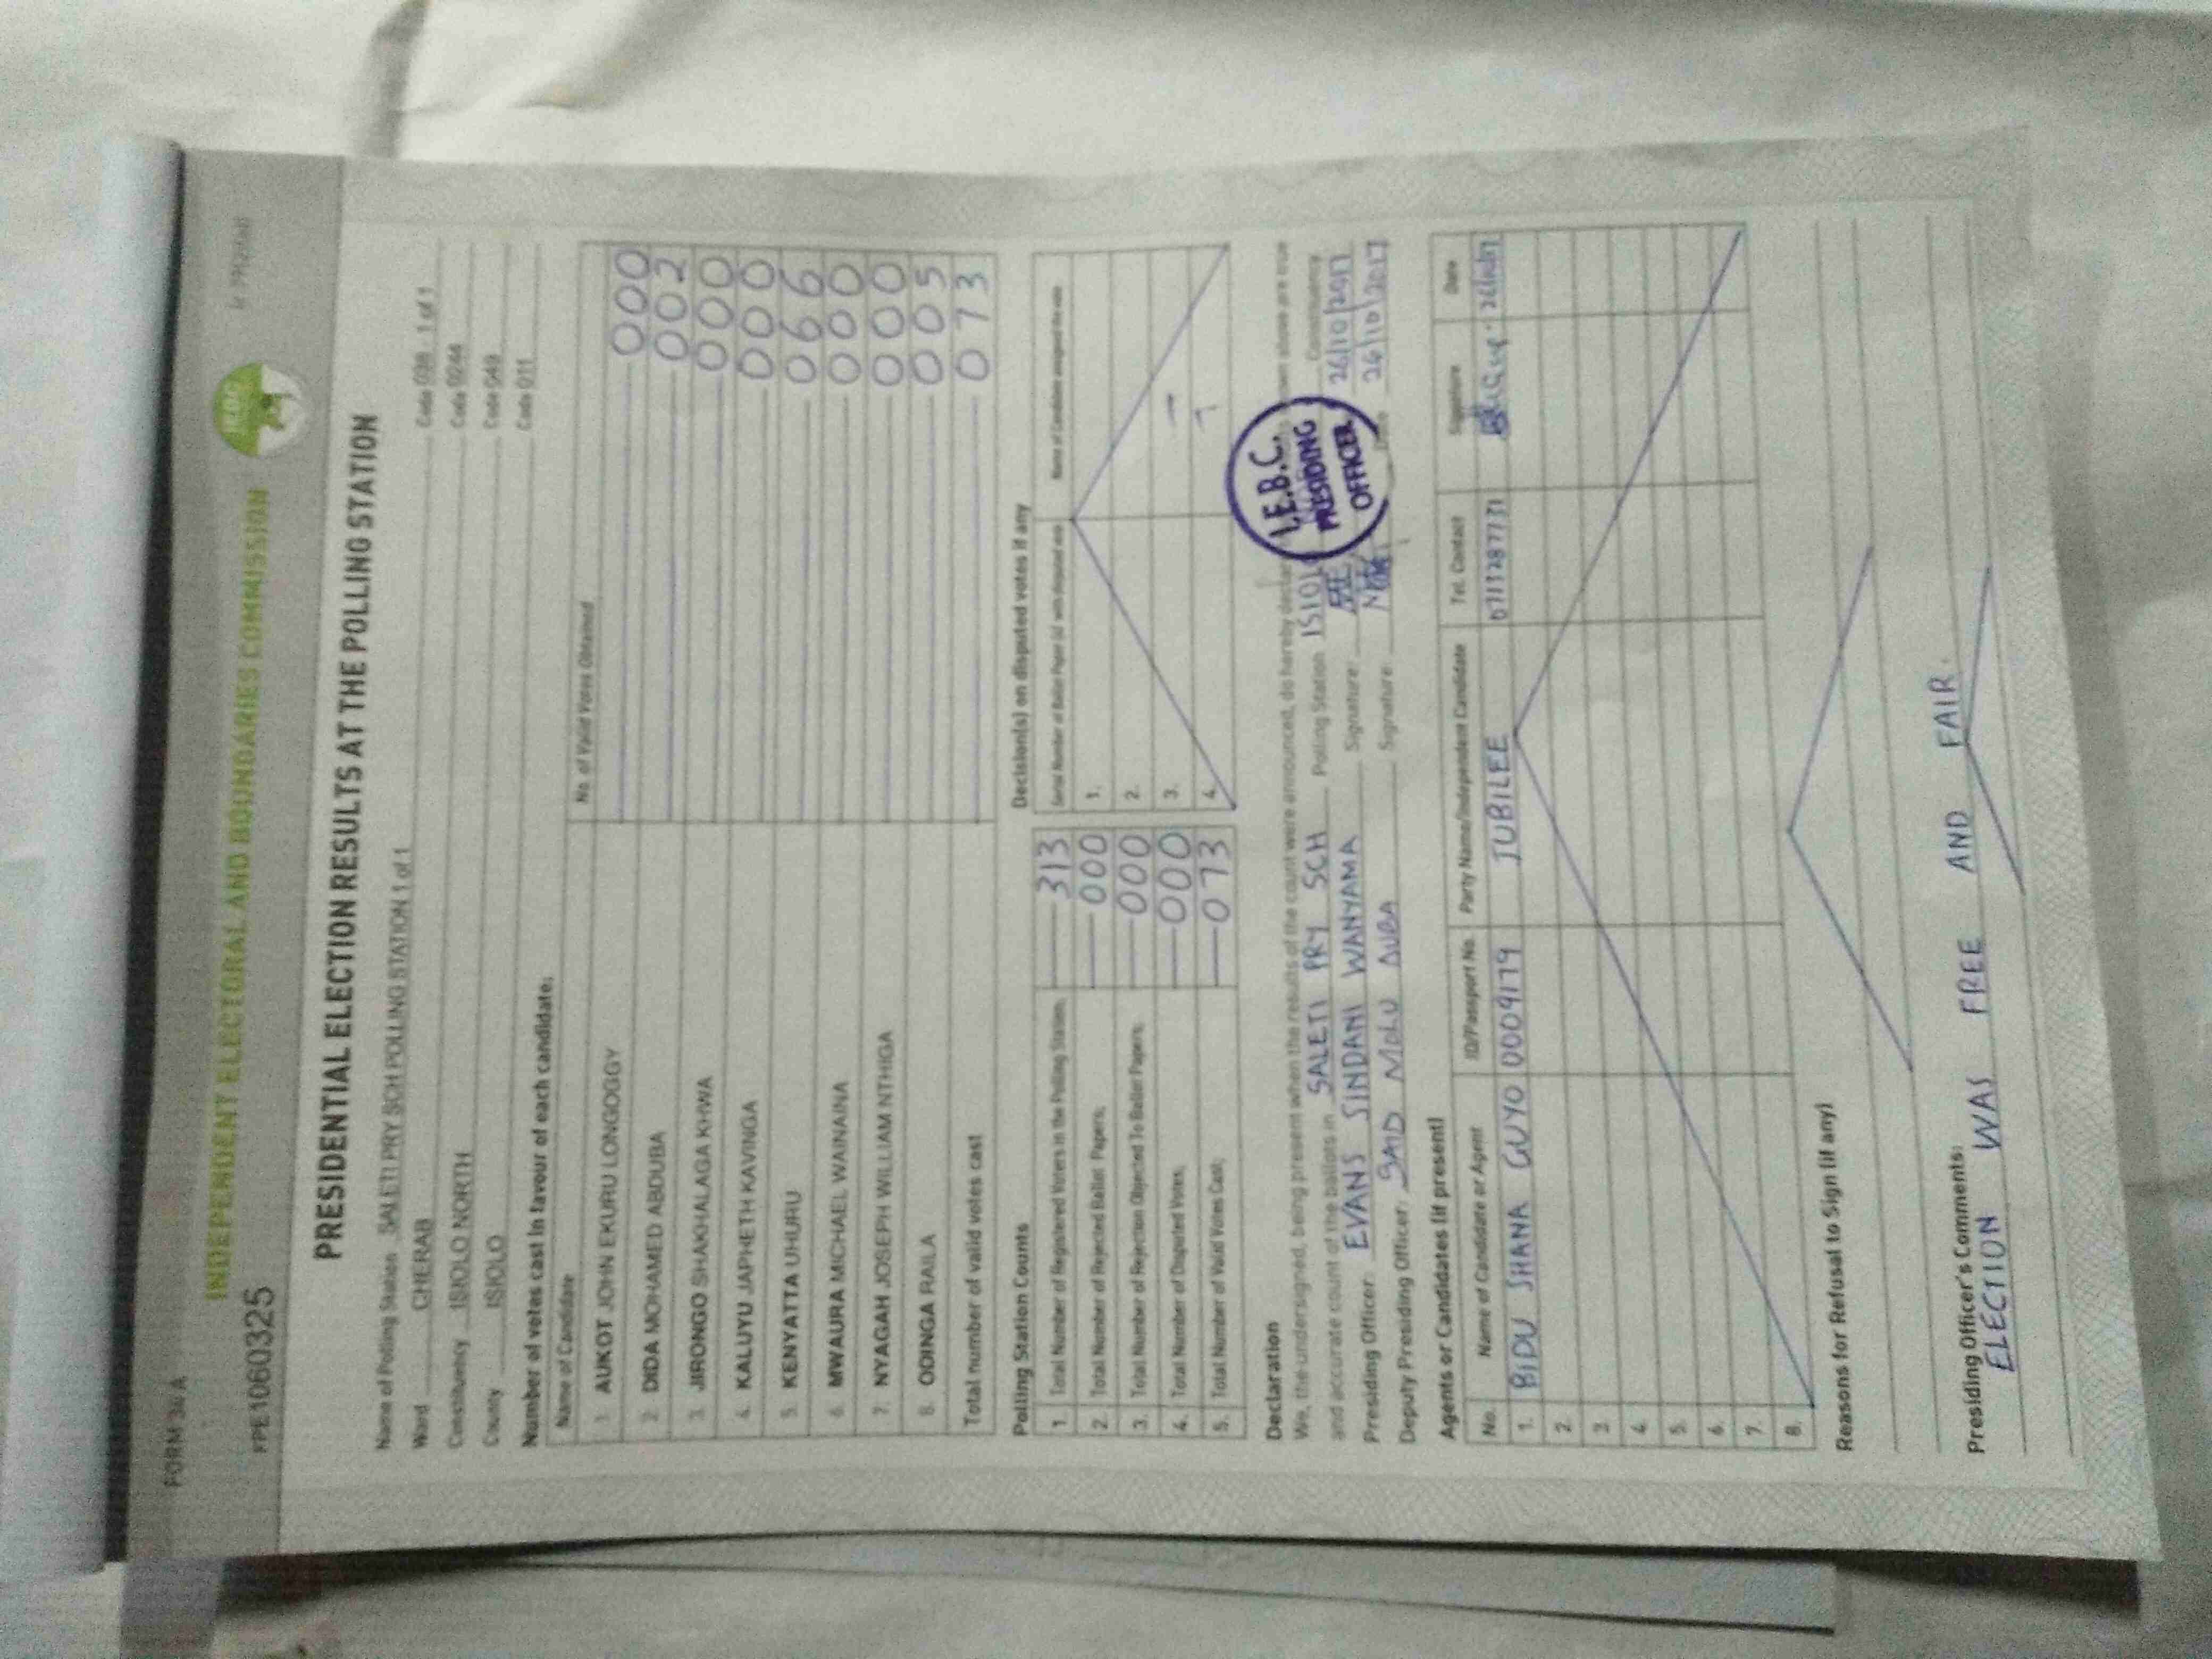 FORM 34 A
INDEPENDENT ELECTORAL AND BOUNDARIES COMMISSION
FPE1060325
PRESIDENTIAL ELECTION RESULTS AT THE POLLING STATION
Name of Polling Station SALETI PRY SCH POLLING STATION 1 of 1 Code 038 - 1 of 1
Ward CHERAB Code 0244
Constituency ISIOLO NORTH Code 049
County ISIOLO Code 011
Number of votes cast in favour of each candidate:
Name of Candidate No. of Valid Votes Obtained
1. AUKOT JOHN EKURU LONGOGGY 000
2. DIDA MOHAMED ABDUBA 002
3. JIRONGO SHAKHALAGA KHWA 000
4. KALUYU JAPHETH KAVINGA 000
5. KENYATTA UHURU 066
6. MWAURA MICHAEL WAINAINA 000
7. NYAGAH JOSEPH WILLIAM NTHIGA 000
8. ODINGA RAILA 005
Total number of valid votes cast 073
Polling Station Counts
1. Total Number of Registered Voters in the Polling Station; 313
2. Total Number of Rejected Ballot Papers; 000
3. Total Number of Rejection Objected To Ballot Papers; 000
4. Total Number of Disputed Votes; 000
5. Total Number of Valid Votes Cast; 073
Decision(s) on disputed votes if any
Serial Number of Ballot Paper (s) with disputed vote Name of Candidate assigned the vote
1.
2.
3.
4.
Declaration
We, the undersigned, being present when the results of the count were announced, do hereby declare shown above are true
and accurate count of the ballots in SALETI PRY SCH Polling Station ISIOLO Constituency
Presiding Officer: EVANS SINDANI WANYAMA Signature: 26/10/2017
Deputy Presiding Officer: SAID MOLU DUBA Signature: 26/10/2017
I.E.B.C.
PRESIDING
OFFICER
Agents or Candidates (if present)
No. Name of Candidate or Agent ID/Passport No. Party Name/Independent Candidate Tel. Contact Signature Date
1. BIDU SHANA GUYO 0009179 JUBILEE
2.
3.
4.
5.
6.
7.
8.
Reasons for Refusal to Sign (if any)
Presiding Officer's Comments:
ELECTION WAS FREE AND FAIR.